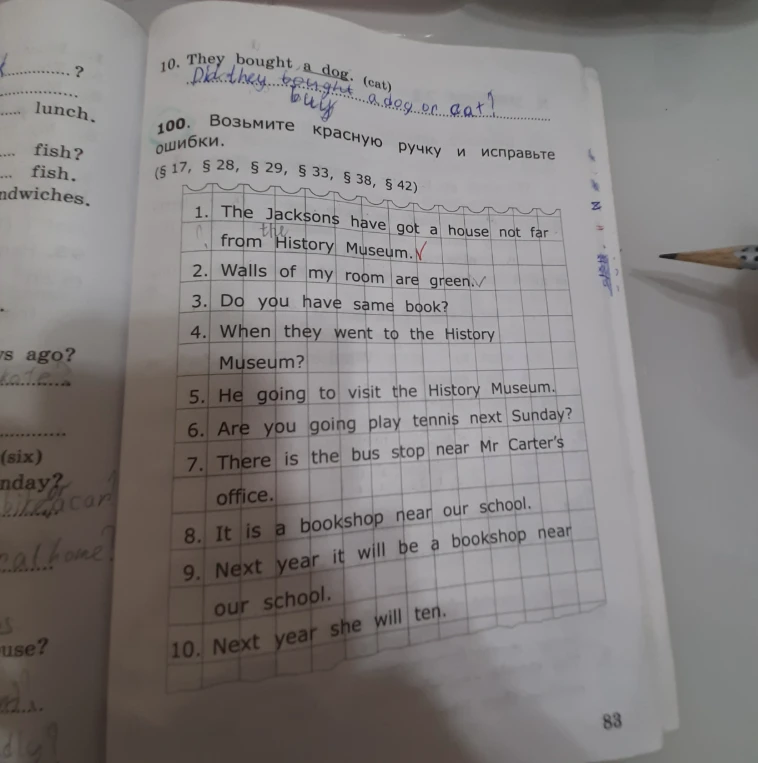 ?
10. They bought a dog. (cat)
Did they bought a dog or cat?
buy
lunch.
100. Возьмите красную ручку и исправьте
ошибки.
fish?
fish.
(§ 17, § 28, § 29, § 33, § 38, § 42)
ndwiches.
1. The Jacksons have got a house not far
the
from History Museum.
2. Walls of my room are green.
3. Do you have same book?
4. When they went to the History
Museum?
s ago?
5. He going to visit the History Museum.
6. Are you going play tennis next Sunday?
(six)
7. There is the bus stop near Mr Carter's
nday?
office.
8. It is a bookshop near our school.
9. Next year it will be a bookshop near
our school.
10. Next year she will ten.
use?
83